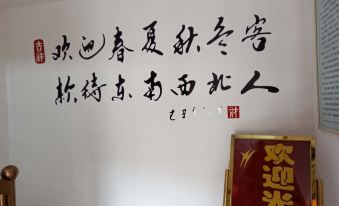 吉祥
欢迎春夏秋冬客
款待东南西北人
财
欢迎光